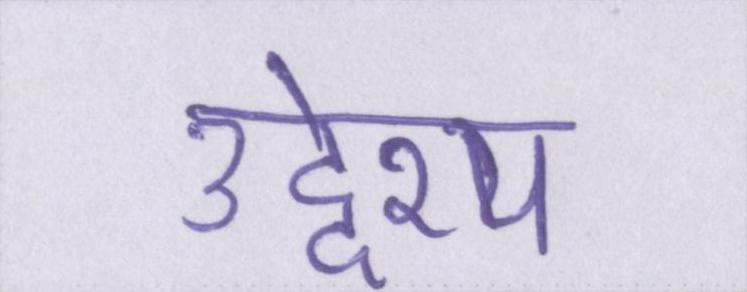 उद्देश्य